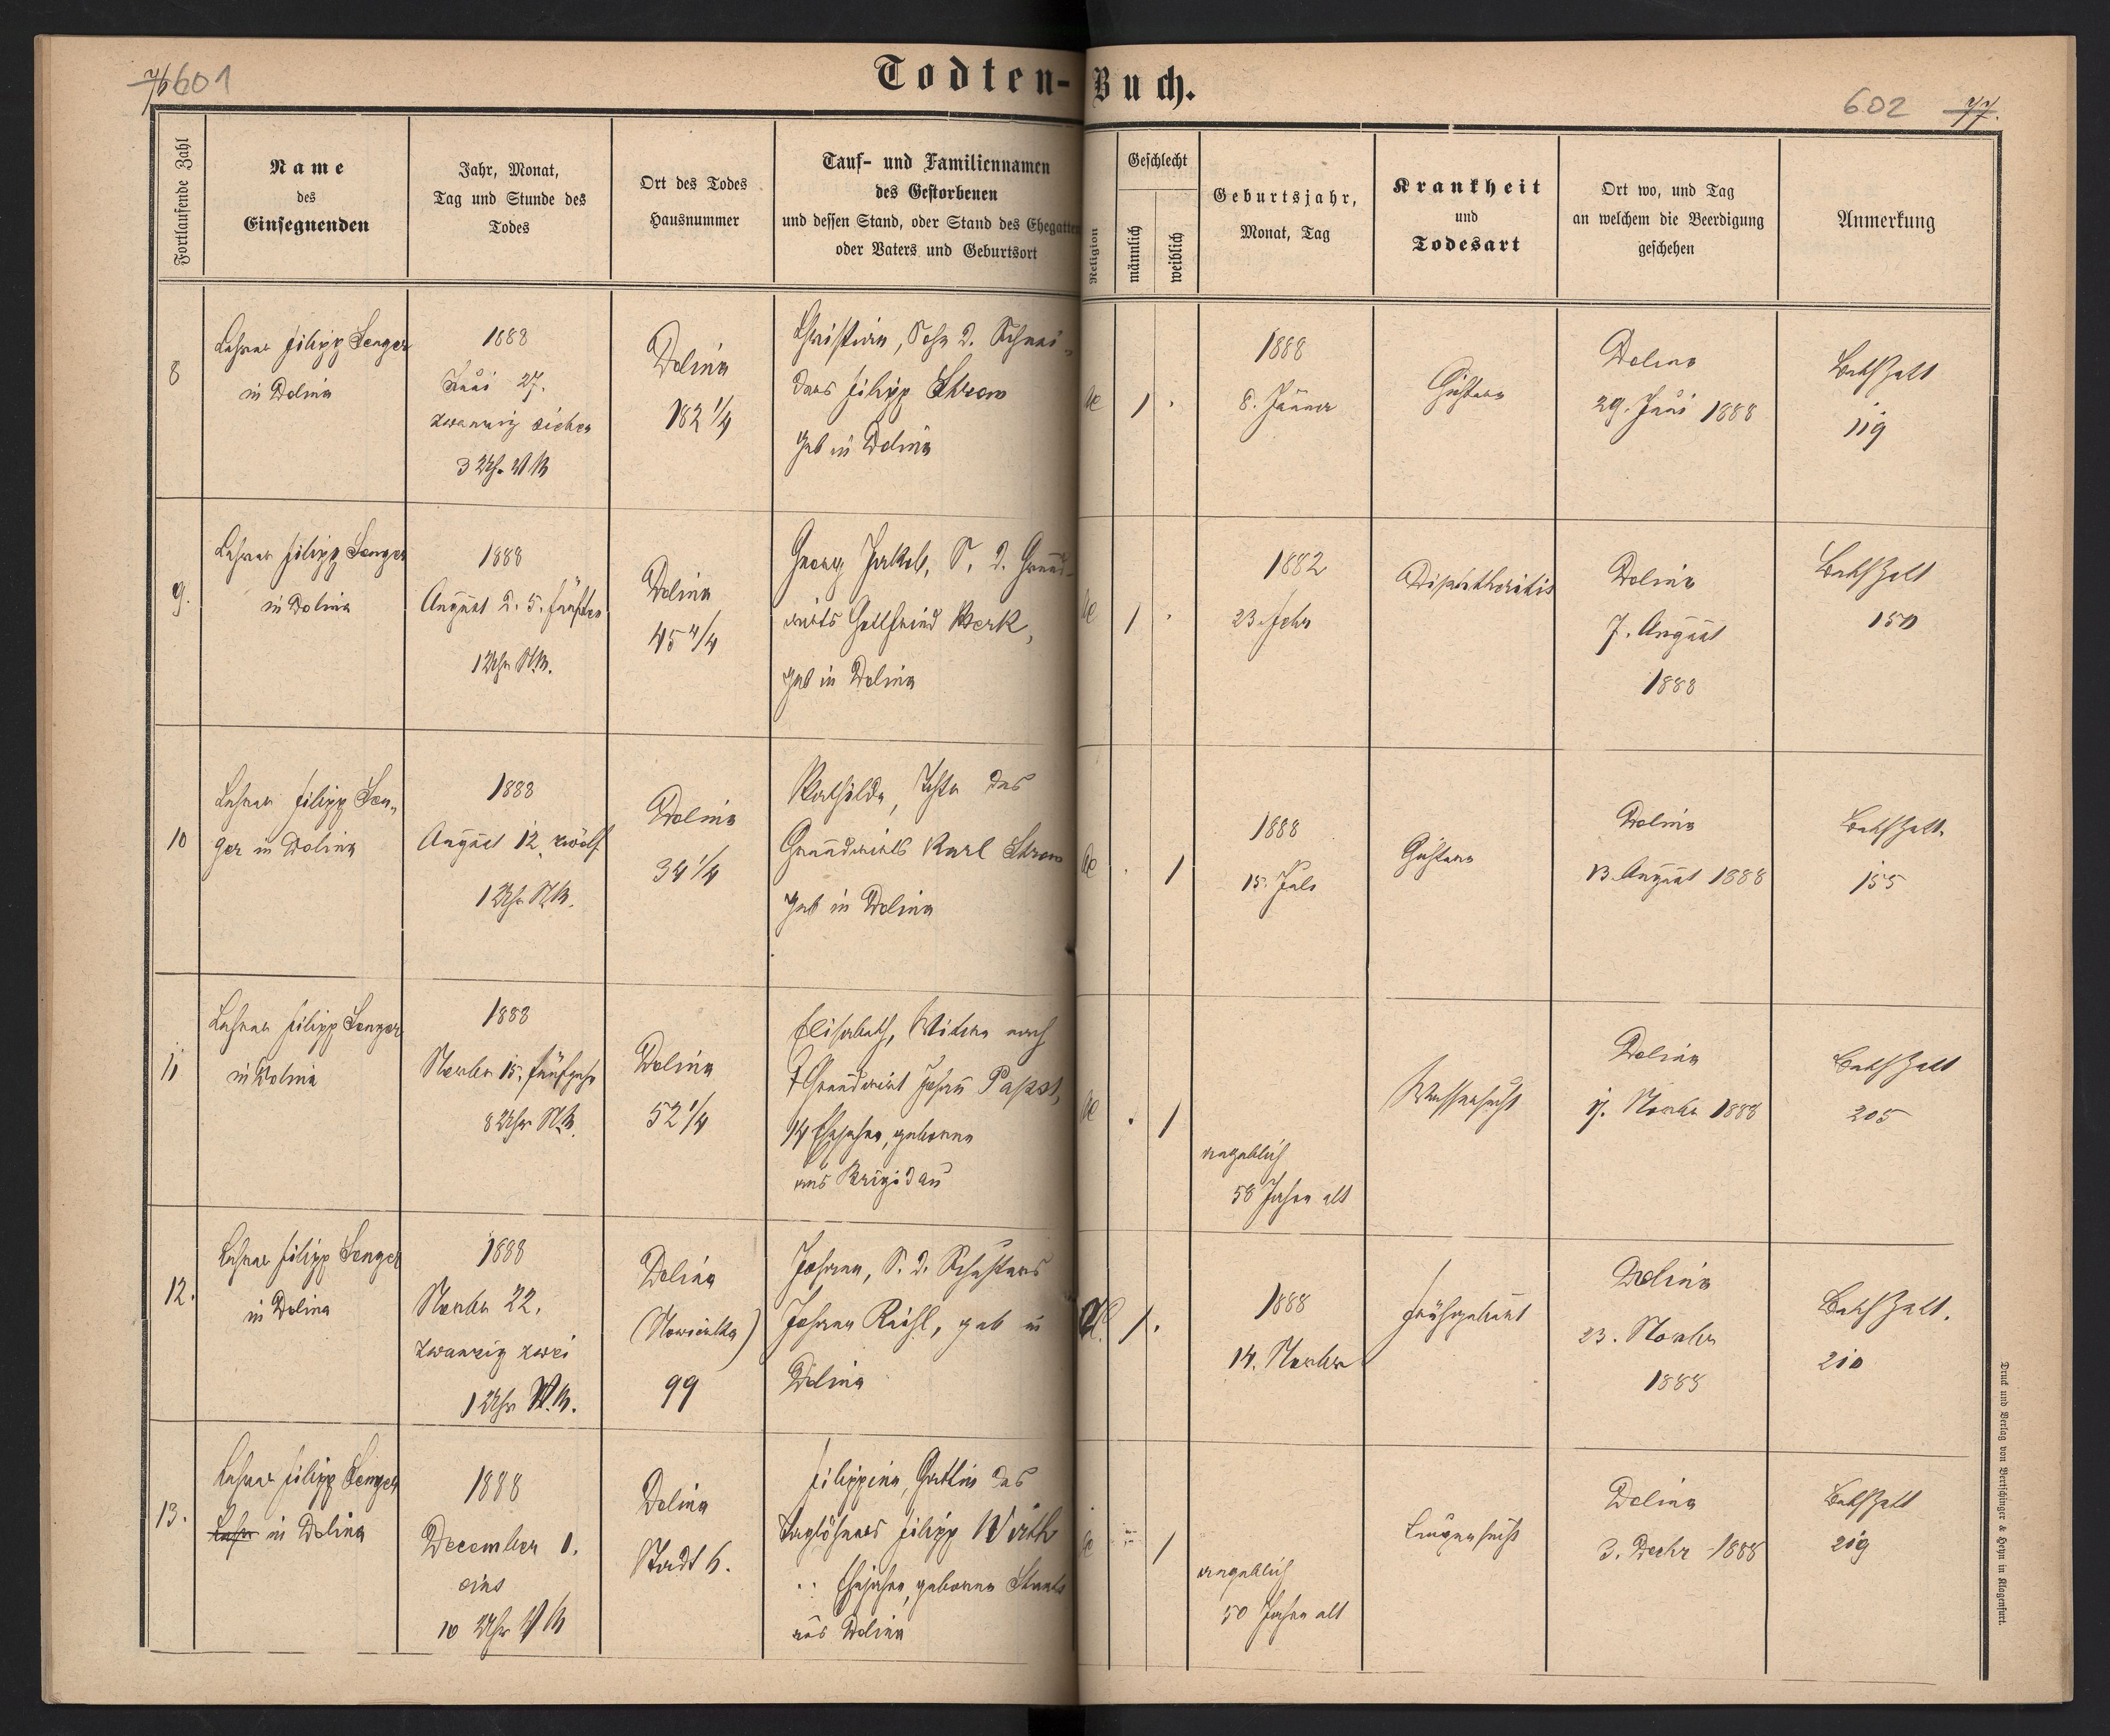 76 601
Todten-Buch.
602 77.
Fortlaufende Zahl
Name
des
Einsegnenden
Jahr, Monat,
Tag und Stunde des
Todes
Ort des Todes
Hausnummer
Tauf- und Familiennamen
des Gestorbenen
und dessen Stand, oder Stand des Ehegatten
oder Vaters und Geburtsort
Religion
Geschlecht
männlich
weiblich
Geburtsjahr,
Monat, Tag
Krankheit
und
Todesart
Ort wo, und Tag
an welchem die Beerdigung
geschehen
Anmerkung
8
Lehrer Filipp Senger
in Dolina
1888
27.
zwanzig sieben
3 Uhr VM
Dolina
182 1/4
Christian, Sohn d. Schnei-
ders Filipp
geb in Dolina
1
1888
8. Jänner
Dolina
29. 1888
119
9.
Lehrer Filipp Senger
in Dolina
1888
August d. 5. fünften
1 Uhr NM.
Dolina
45 4/4
Georg Jakob, S. d. Grund-
wirts Gottfried
geb in Dolina
1
1882
23. Febr
Dolina
7. August
1888
150
10
Lehrer Filipp Sen-
ger in Dolina
1888
August 12, zwölf
1 Uhr NM.
Dolina
34 1/4
Mathilda, des
Grundwirts Karl
geb in Dolina
1
1888
15. Juli
Dolina
13. August 1888
155
11
Lehrer Filipp Senger
in Dolina
1888
Novber 15. fünfzehn
8 Uhr NM.
Dolina
52 1/4
Elisabeth, Witwe nach
† Grundwirt Johann Papst,
14 Ehejahre, geborene
aus Brigidau
1
angeblich
58 Jahre alt
Wassersucht
Dolina
17. Novber 1888
205
12.
Lehrer Filipp Senger
in Dolina
1888
Novber 22.
zwanzig zwei
1 Uhr VM.
Dolina
99
Johann, S. d. Schusters
Johann, geb in
Dolina
1
1888
14. Novber
Frühgeburt
Dolina
23. Novber
1888
210
13.
Lehrer Filipp Senger
in Dolina
1888
December 1.
eins
10 Uhr VM
Dolina
Stadt 6.
Filippina, Gattin des
Taglöhners Filipp Wirth
Ehejahre, geborene
aus Dolina
1
angeblich
50 Jahre alt
Lungensucht
Dolina
3. Decbr 1888
219
Druck und Verlag von Bertschinger & Heyn in Klagenfurt.